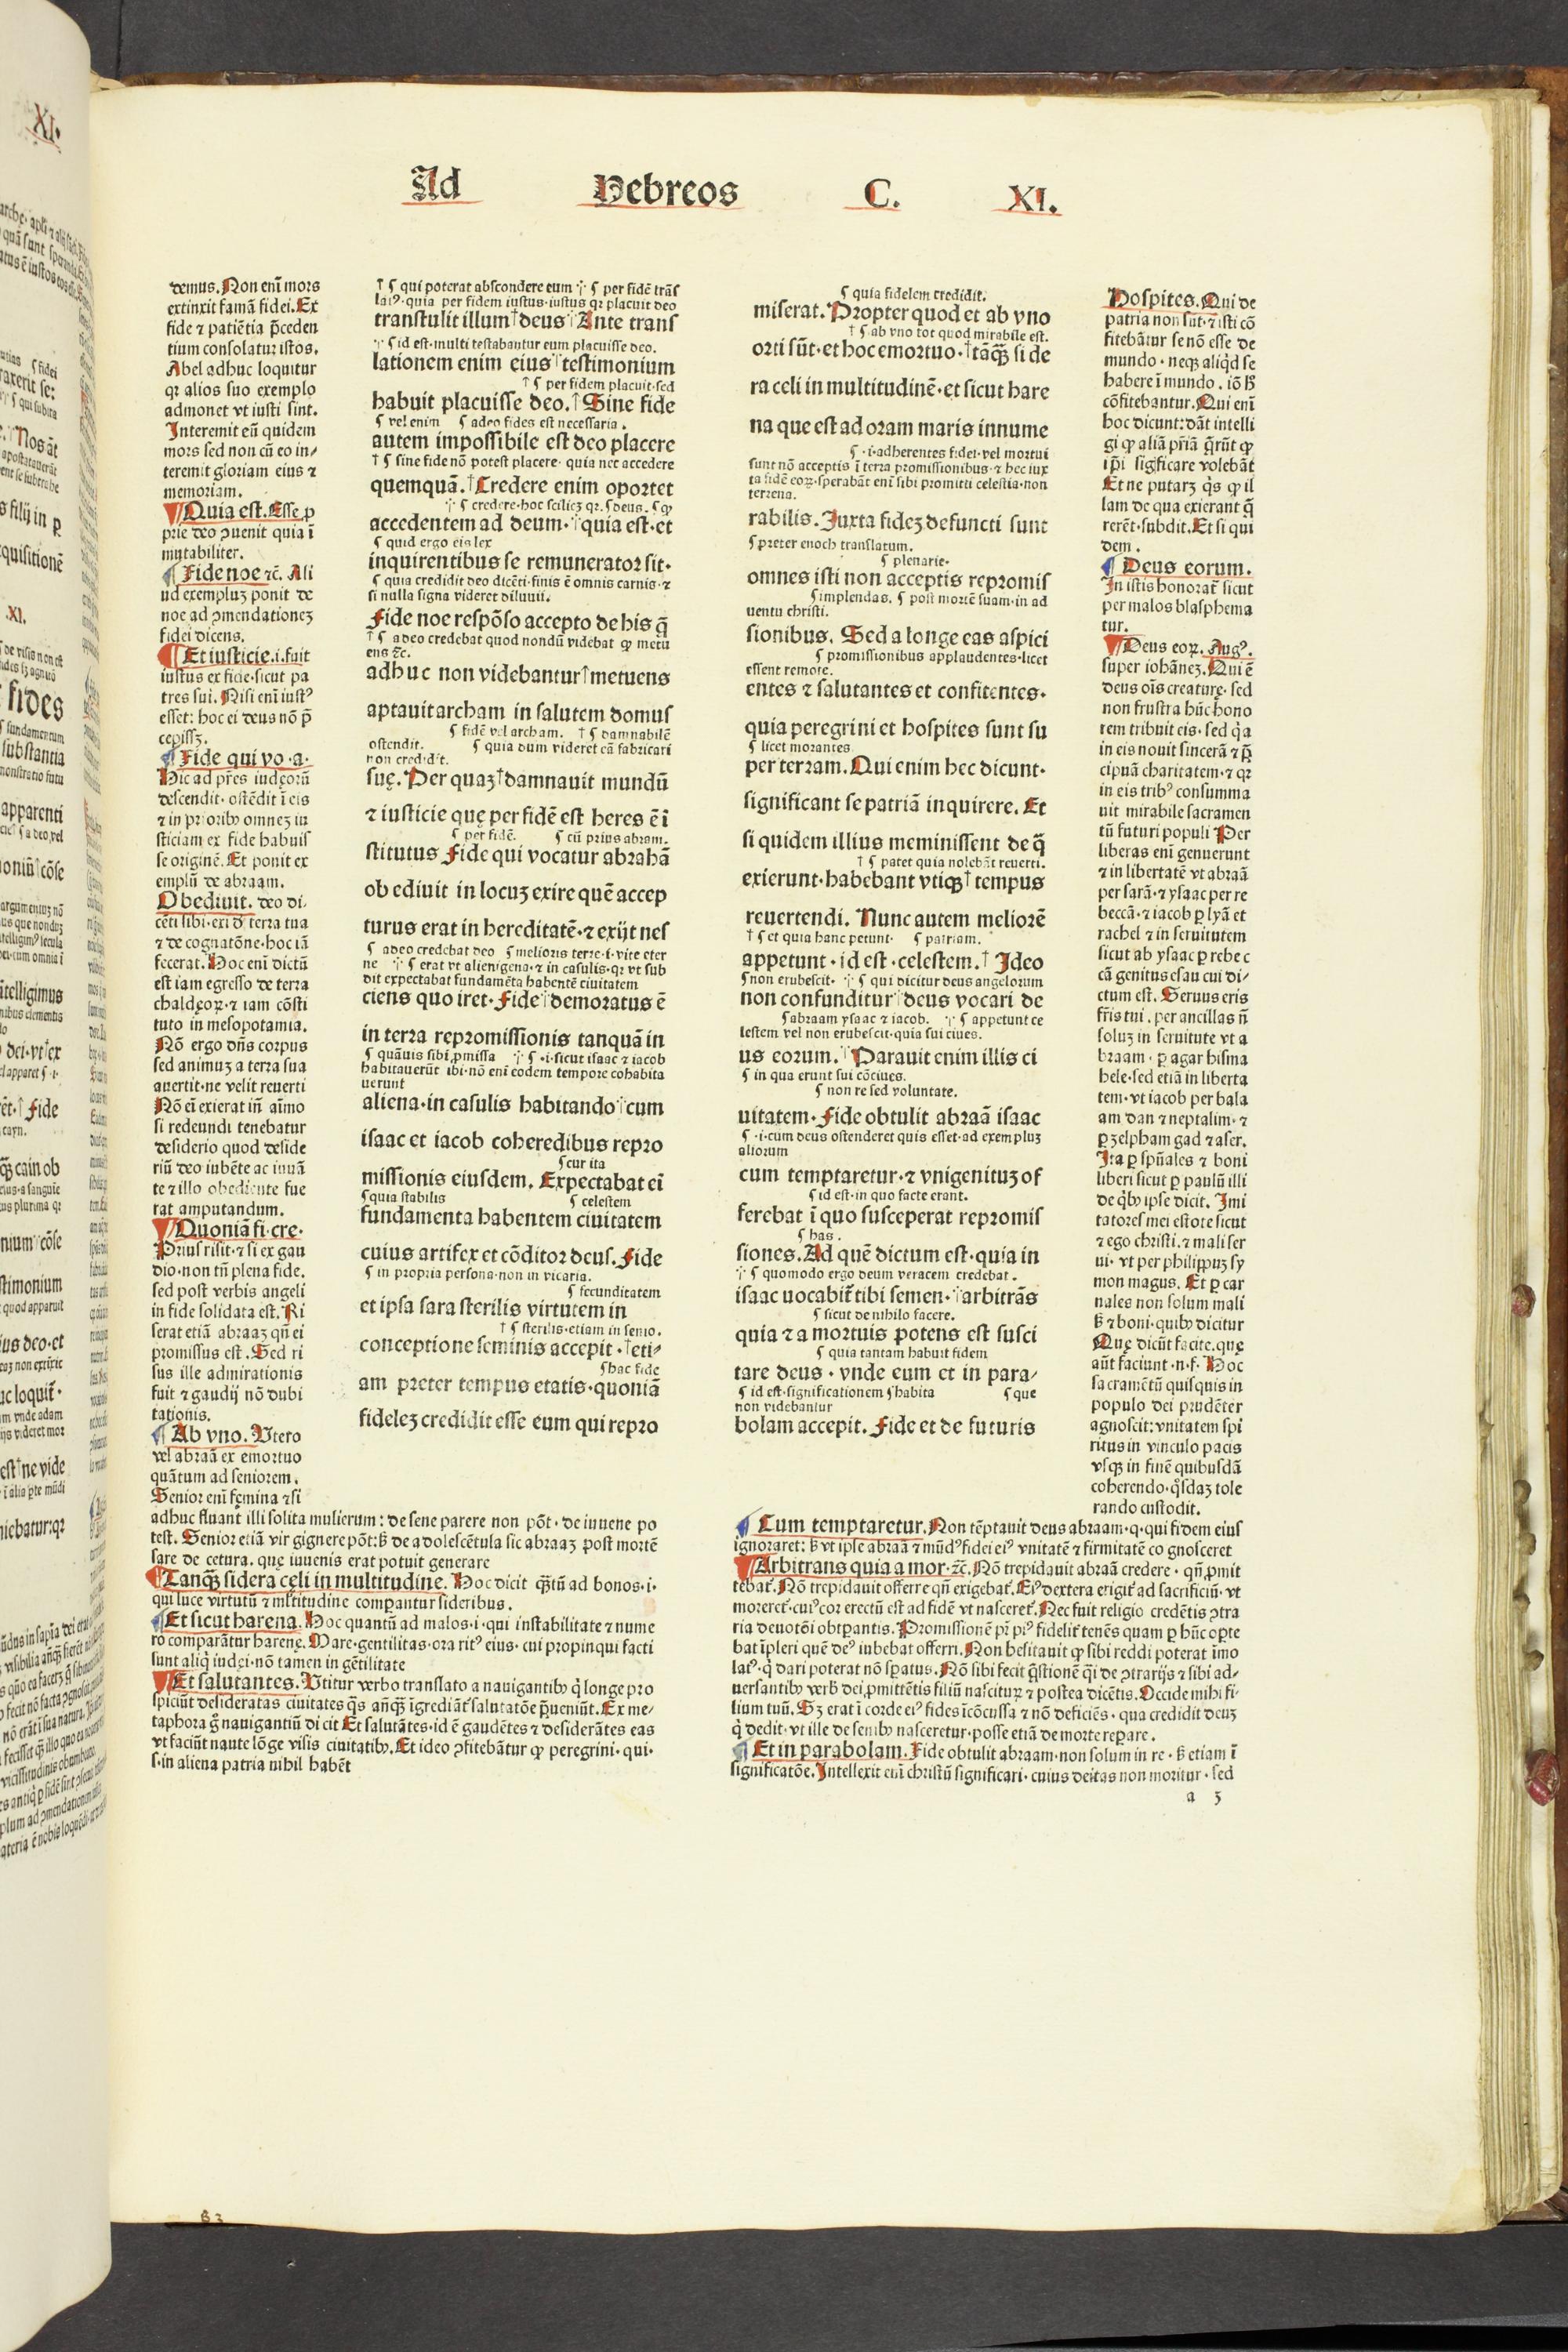 Ad Hebreos C. XI.
demus. Non enī mors
extinxit famā fidei. Ex
fide ⁊ patiētia p̄ceden
tium consolatur istos.
Abel adhuc loquitur
qꝛ alios suo exemplo
admonet vt iusti sint.
Interemit eū quidem
mors sed non cū eo in/
teremit gloriam eius ⁊
memoriam.
Quia est. Esse ꝓ
prie deo ↄuenit quia ī
mutabiliter.
Fide noe ⁊c̄. Ali
ud exempluꝫ ponit de
noe ad ↄmendationeꝫ
fidei dicens.
Et iusticie .i. fuit
iustus ex fide · sicut pa
tres sui. Nisi enī iustꝰ
esset: hoc ei deus nō p̄
cepissꝫ.
Fide qui vo · a ·
Hic ad pr̄es iudęorū
descendit · ostēdit ī eis
⁊ in prioribꝰ omneꝫ iu
sticiam ex fide habuis
se originē. Et ponit ex
emplū de abraam.
Obediuit. deo di-
cēti sibi · exi d̄ terra tua
⁊ de cognatōne · hoc iā
fecerat. Hoc enī dictū
est iam egresso de terra
chaldęoꝝ · ⁊ iam cōsti
tuto in mesopotamia.
Nō ergo dn̄s corpus
sed animuꝫ a terra sua
auertit · ne velit reuerti
Nō eī exierat in̄ aīmo
si redeundi tenebatur
desiderio quod deside
riū deo iubēte ac iuuā
te ⁊ illo obediente fue
rat amputandum.
Quoniā fi · cre ·
Prius risit · ⁊ si ex gau
dio · non tn̄ plena fide.
sed post verbis angeli
in fide solidata est. Ri
serat etiā abraaꝫ qn̄ ei
promissus est. Sed ri
sus ille admirationis
fuit ⁊ gaudij nō dubi
tationis.
Ab vno. Vtero
vel abraā ex emortuo
quātum ad seniorem.
Senior enī femina ⁊ si
adhuc fluant illi solita mulierum: de sene parere non pōt · de iuuene po
test. Senior etiā vir gignere pōt: ß de adolescētula sic abraaꝫ post mortē
sare de cetura. quę iuuenis erat potuit generare
Tanqꝫ sidera cęli in multitudine. Hoc dicit qꝫtū ad bonos · i ·
qui luce virtutū ⁊ ml̄titudine comparantur sideribus.
Et sicut harena. Hoc quantū ad malos · i · qui instabilitate ⁊ nume
ro comparātur harenę. Mare · gentilitas · ora ritꝰ eius · cui propinqui facti
sunt aliqͥ iudęi · nō tamen in gētilitate
Et salutantes. Vtitur verbo translato a nauigantibꝰ qͥ longe pro
spiciūt desideratas ciuitates qͣs anqꝫ īgrediāt̄ salutatōe p̄ueniūt. Ex me-
taphora g̊ nauigantiū dicit Et salutātes · id ē gaudētes ⁊ desiderātes eas
vt faciūt naute lōge visis ciuitatibꝰ. Et ideo ↄfitebātur ꝙ peregrini · qui ·
s · in aliena patria nihil habēt
† ⸿ qui poterat abscondere eum ·:· ⸿ per fidē trās
latꝰ · quia per fidem iustus · iustus qꝛ placuit deo
transtulit illum † deus Ante trans
·:· ⸿ id est · multi testabantur eum placuisse deo.
lationem enim eius testimonium
† ⸿ per fidem placuit · sed
habuit placuisse deo. † Sine fide
⸿ vel enim ⸿ adeo fides est necessaria.
autem impossibile est deo placere
† ⸿ sine fide nō potest placere · quia nec accedere
quemquā. † Credere enim oportet
·:· ⸿ credere · hoc scilicꝫ qꝛ. ⸿ deus. ⸿ ꝙ
accedentem ad deum · quia est · et
⸿ quid ergo eis lex
inquirentibus se remunerator sit ·
⸿ quia credidit deo dicēti · finis ē omnis carnis · ⁊
si nulla signa videret diluuii.
Fide noe respōso accepto de his q̄
† ⸿ adeo credebat quod nondū videbat ꝙ metu
ens ⁊c̄.
adhuc non videbantur † metuens
aptauit archam in salutem domus
⸿ fidē vel archam. † ⸿ damnabilē
ostendit. ⸿ quia dum videret eā fabricari
non credidit.
suę. Per quaꝫ † damnauit mundū
⁊ iusticie quę per fidē est heres ē ī
⸿ per fidē. ⸿ cū prius abram.
stitutus Fide qui vocatur abrahā
obediuit in locuꝫ exire quē accep
turus erat in hereditatē · ⁊ exijt nes
⸿ adeo credebat deo ⸿ melioris terre · i · vite eter
ne ·:· ⸿ erat vt alienigena · ⁊ in casulis · qꝛ vt sub
dit expectabat fundamēta habentē ciuitatem
ciens quo iret · Fide demoratus ē
in terra repromissionis tanquā in
⸿ quāuis sibi ꝓmissa ·:· ⸿ · i · sicut isaac ⁊ iacob
habitauerūt ibi · nō enī eodem tempore cohabita
uerunt
aliena · in casulis habitando cum
isaac et iacob coheredibus repro
⸿ cur ita
missionis eiusdem. Expectabat eī
⸿ quia stabilis ⸿ celestem
fundamenta habentem ciuitatem
cuius artifex et cōditor deus. Fide
⸿ in propria persona · non in vicaria.
⸿ fecunditatem
et ipsa sara sterilis virtutem in
† ⸿ sterilis · etiam in senio.
conceptione seminis accepit · † eti/
⸿ hac fide
am preter tempus etatis · quoniā
fideleꝫ credidit esse eum qui repro
⸿ quia fidelem credidit.
miserat. Propter quod et ab vno
† ⸿ ab vno tot quod mirabile est.
orti sūt · et hoc emortuo · † tāqꝫ side
ra celi in multitudinē · et sicut hare
na que est ad oram maris innume
⸿ · i · adherentes fidei · vel mortui
sunt nō acceptis ī terra promissionibus · ⁊ hec iux
ta fidē eoꝝ · sperabāt enī sibi promitti celestia · non
terrena.
rabilis. Juxta fideꝫ defuncti sunt
⸿ preter enoch translatum.
⸿ plenarie ·
omnes isti non acceptis repromis
⸿ implendas. ⸿ post mortē suam · in ad
uentu christi.
sionibus. Sed a longe eas aspici
⸿ promissionibus applaudentes · licet
essent remote.
entes ⁊ salutantes et confitentes ·
quia peregrini et hospites sunt su
⸿ licet morantes
per terram. Qui enim hec dicunt ·
significant se patriā inquirere. Et
si quidem illius meminissent de q̄
† ⸿ patet quia nolebāt reuerti.
exierunt · habebant vtiqꝫ † tempus
reuertendi. Nunc autem meliorē
† ⸿ et quia hanc petunt · ⸿ patriam.
appetunt · id est · celestem. † Ideo
⸿ non erubescit · ·:· ⸿ qui dicitur deus angelorum
non confunditur deus vocari de
⸿ abraam ysaac ⁊ iacob. ·:· ⸿ appetunt ce
lestem vel non erubescit · quia sui ciues.
us eorum. Parauit enim illis ci
⸿ in qua erunt sui cōciues.
⸿ non re sed voluntate.
uitatem · Fide obtulit abraā isaac
⸿ · i · cum deus ostenderet quis esset · ad exempluꝫ
aliorum
cum temptaretur · ⁊ vnigenituꝫ of
⸿ id est · in quo facte erant.
ferebat ī quo susceperat repromis
⸿ has.
siones. Ad quē dictum est · quia in
·:· ⸿ quomodo ergo deum veracem credebat.
isaac uocabit̄ tibi semen · arbitrās
⸿ sicut de nihilo facere.
quia ⁊ a mortuis potens est susci
⸿ quia tantam habuit fidem
tare deus · vnde eum et in para/
⸿ id est · significationem ⸿ habita ⸿ que
non videbantur
bolam accepit. Fide et de futuris
Hospites. Qui de
patria non sūt · ⁊ isti cō
fitebātur se nō esse de
mundo · neqꝫ aliqͥd se
habere ī mundo. iō ß
cōfitebantur. Qui enī
hoc dicunt: dāt intelli
gi ꝙ aliā pr̄iā q̄rūt ꝙ
ip̄i significare volebāt
Et ne putarꝫ qͥs ꝙ il
lam de qua exierant q̄
rerēt · subdit. Et si qui
dem.
Deus eorum.
In istis honorat̄ sicut
per malos blasphema
tur.
Deus eoꝝ. Augꝰ.
super iohāneꝫ. Qui ē
deus oīs creature · sed
non frustra hūc hono
rem tribuit eis · sed qͥa
in eis nouit sincerā ⁊ p̄
cipuā charitatem · ⁊ qꝛ
in eis tribꝰ consumma
uit mirabile sacramen
tū futuri populi Per
liberas enī genuerunt
⁊ in libertatē vt abraā
per sarā · ⁊ ysaac per re
beccā · ⁊ iacob ꝑ lyā et
rachel ⁊ in seruitutem
sicut ab ysaac ꝑ rebec
cā genitus esau cui di-
ctum est. Seruus eris
fr̄is tui. per ancillas n̄
soluꝫ in seruitute vt a
braam · ꝑ agar hisma
hele · sed etiā in liberta
tem · vt iacob per bala
am dan ⁊ neptalim · ⁊
ꝑ zelpham gad ⁊ aser.
Ita ꝑ spūales ⁊ boni
liberi sicut ꝑ paulū illi
de qͥbꝰ ipse dicit. Imi
tatores mei estote sicut
⁊ ego christi. ⁊ mali ser
ui · vt per philippuꝫ sy
mon magus. Et ꝑ car
nales non solum mali
ß ⁊ boni · quibꝰ dicitur
Quę dicūt facite. quę
aūt faciunt · n · f · Hoc
sacramētū quisquis in
populo dei prudēter
agnoscit: vnitatem spi
ritus in vinculo pacis
vsqꝫ in finē quibusdā
coherendo · qͦsdaꝫ tole
rando custodit.
Cum temptaretur. Non tēptauit deus abraam · q · qui fidem eius
ignoraret: ß vt ipse abraā ⁊ mūdꝰ fidei eiꝰ vnitatē ⁊ firmitatē cognosceret
Arbitrans quia a mor · ⁊c̄. Nō trepidauit abraā credere · qn̄ ꝓmit
tebat̄. Nō trepidauit offerre qn̄ exigebat̄. Eiꝰ dextera erigit̄ ad sacrificiū · vt
moreret̄ · cuiꝰ cor erectū est ad fidē vt nasceret̄. Nec fuit religio credētis ↄtra
ria deuotōi obtꝑantis. Promissionē pr̄ piꝰ fidelit̄ tenēs quam ꝑ hūc oꝑte
bat īpleri quē deꝰ iubebat offerri. Non hesitauit ꝙ sibi reddi poterat īmo
latꝰ · qͥ dari poterat nō sꝑatus. Nō sibi fecit q̄stionē qͥ de ↄtrarijs ⁊ sibi ad/
uersantibꝰ verbꝭ dei ꝓmittētis filiū nasciturꝫ ⁊ postea dicētis. Occide mihi fi-
lium tuū. Sꝫ erat ī corde eiꝰ fides īcōcussa ⁊ nō deficiēs · qua credidit deuꝫ
qͥ dedit · vt ille de senibꝰ nasceretur · posse etiā de morte reꝑare.
Et in parabolam. Fide obtulit abraam · non solum in re · ß etiam ī
significatōe. Intellexit enī christū significari · cuius deitas non moritur · sed
a 3